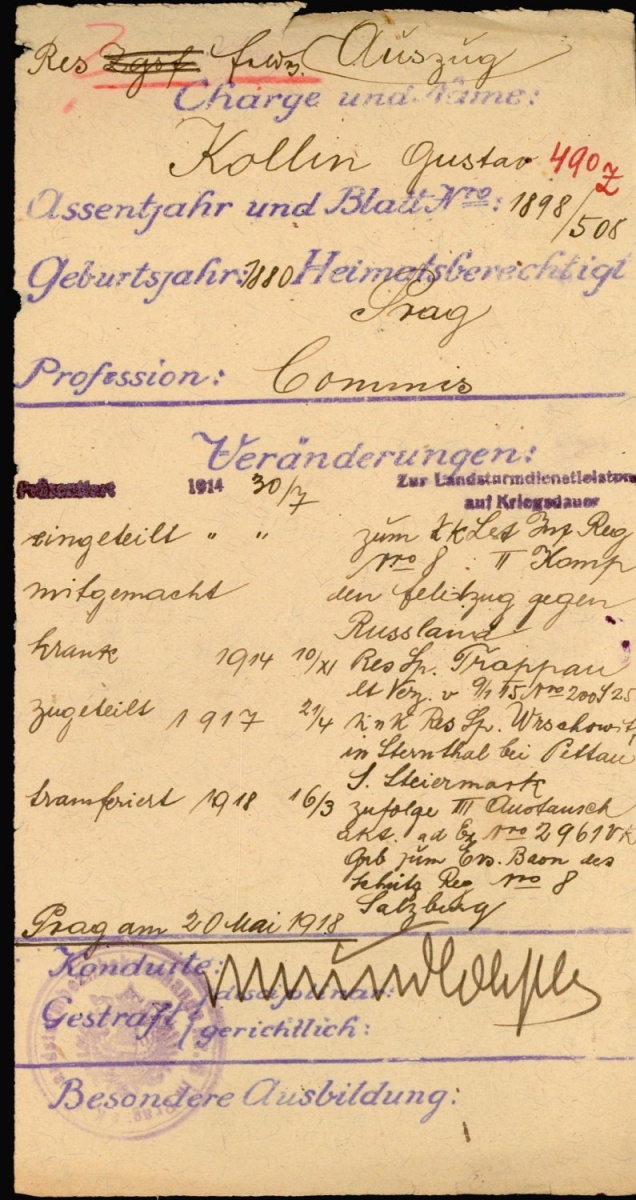 Res Zgsf Auszug
Charge und Name:
Kollin Gustav 490
Assentjahr und Blatt Nro: 1898/508
Geburtsjahr: 1880 Heimatsberechtigt
Prag
Profession: Commis
Veränderungen:
Präsentiert 1914 30/7 Zur Landsturmdienstleistung
auf Kriegsdauer
eingeteilt " " zum k k Lst Inf Reg
Nro 8 : II Komp
mitgemacht den Feldzug gegen
Russland
krank 1914 10/XI Res Sp. Troppau
lt Verz. v 9/1 15 Nro 200 S 25
zugeteilt 1917 21/4 Res Sp. Wrschowitz
in Sternthal bei Pettau
S. Steiermark
transferiert 1918 16/3 zufolge III Austausch
akt. ad Nro 2961
zum Ers. Baon des
Schütz Reg Nro 8
Salzburg
Prag am 20 Mai 1918
Konduite:
Gestraft disziplinar:
gerichtlich:
Besondere Ausbildung: